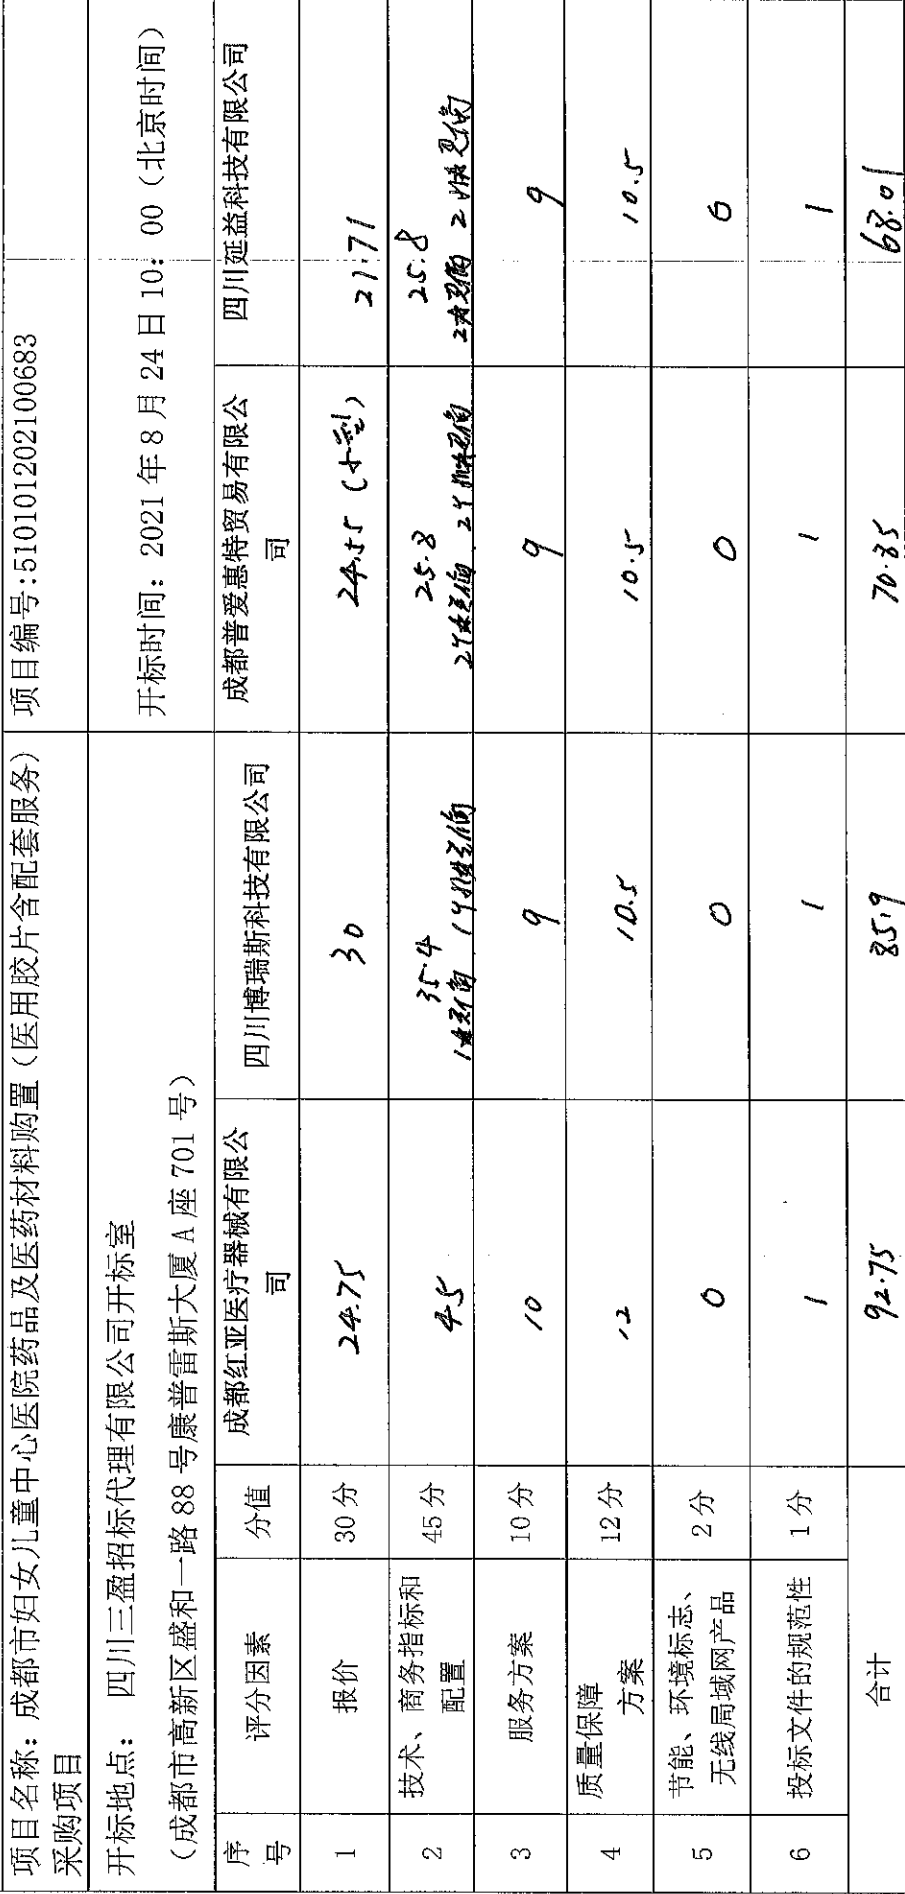 项目名称：成都市妇女儿童中心医院药品及医药材料购置（医用胶片含配套服务）
采购项目
项目编号:510101202100683
开标地点： 四川三盈招标代理有限公司开标室
（成都市高新区盛和一路 88 号康普雷斯大厦 A 座 701 号）
开标时间：2021 年 8 月 24 日 10：00（北京时间）
序
号
评分因素
分值
成都红亚医疗器械有限公
司
四川博瑞斯科技有限公司
成都普爱惠特贸易有限公
司
四川延益科技有限公司
1
报价
30 分
24.75
30
24.55（小型）
21.71
2
技术、商务指标和
配置
45 分
45
35.4
25.8
25.8
3
服务方案
10 分
10
9
9
9
4
质量保障
方案
12 分
12
10.5
10.5
10.5
5
节能、环境标志、
无线局域网产品
2 分
0
0
0
0
6
投标文件的规范性
1 分
1
1
1
1
合计
92.75
85.9
70.85
68.01